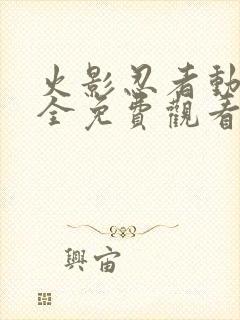 火影忍者動
全免費觀看
興宙